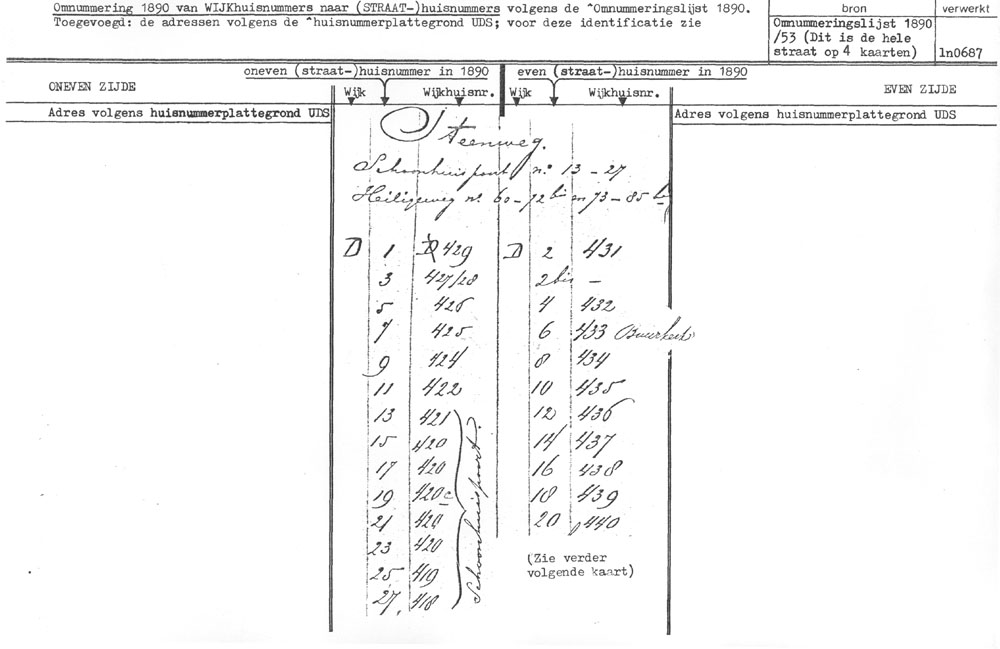 Omnummering 1890 van WIJKhuisnummers naar (STRAAT-)huisnummers volgens de ^Omnummeringslijst 1890.
Toegevoegd: de adressen volgens de ^huisnummerplattegrond UDS; voor deze identificatie zie
bron
verwerkt
Omnummeringslijst 1890
/53 (Dit is de hele
straat op 4 kaarten)
ln0687
oneven (straat-)huisnummer in 1890
even (straat-)huisnummer in 1890
ONEVEN ZIJDE
Wijk
Wijkhuisnr.
Wijk
Wijkhuisnr.
EVEN ZIJDE
Adres volgens huisnummerplattegrond UDS
Adres volgens huisnummerplattegrond UDS
Steenweg.
Schoonhuispoort no. 13 - 27
Heiligeweg no. 60 - 72 bis en 73 - 85 bis
D 1 429 D 2 431
3 427/28 2 bis -
5 426 4 432
7 425 6 433 Buurkerk
9 424 8 434
11 422 10 435
13 421 12 436
15 420 14 437
17 420 16 438
19 420c 18 439
21 420 20 440
23 420
25 419
27. 418
Schoonhuispoort.
Schoonhuispoort
(Zie verder
volgende kaart)